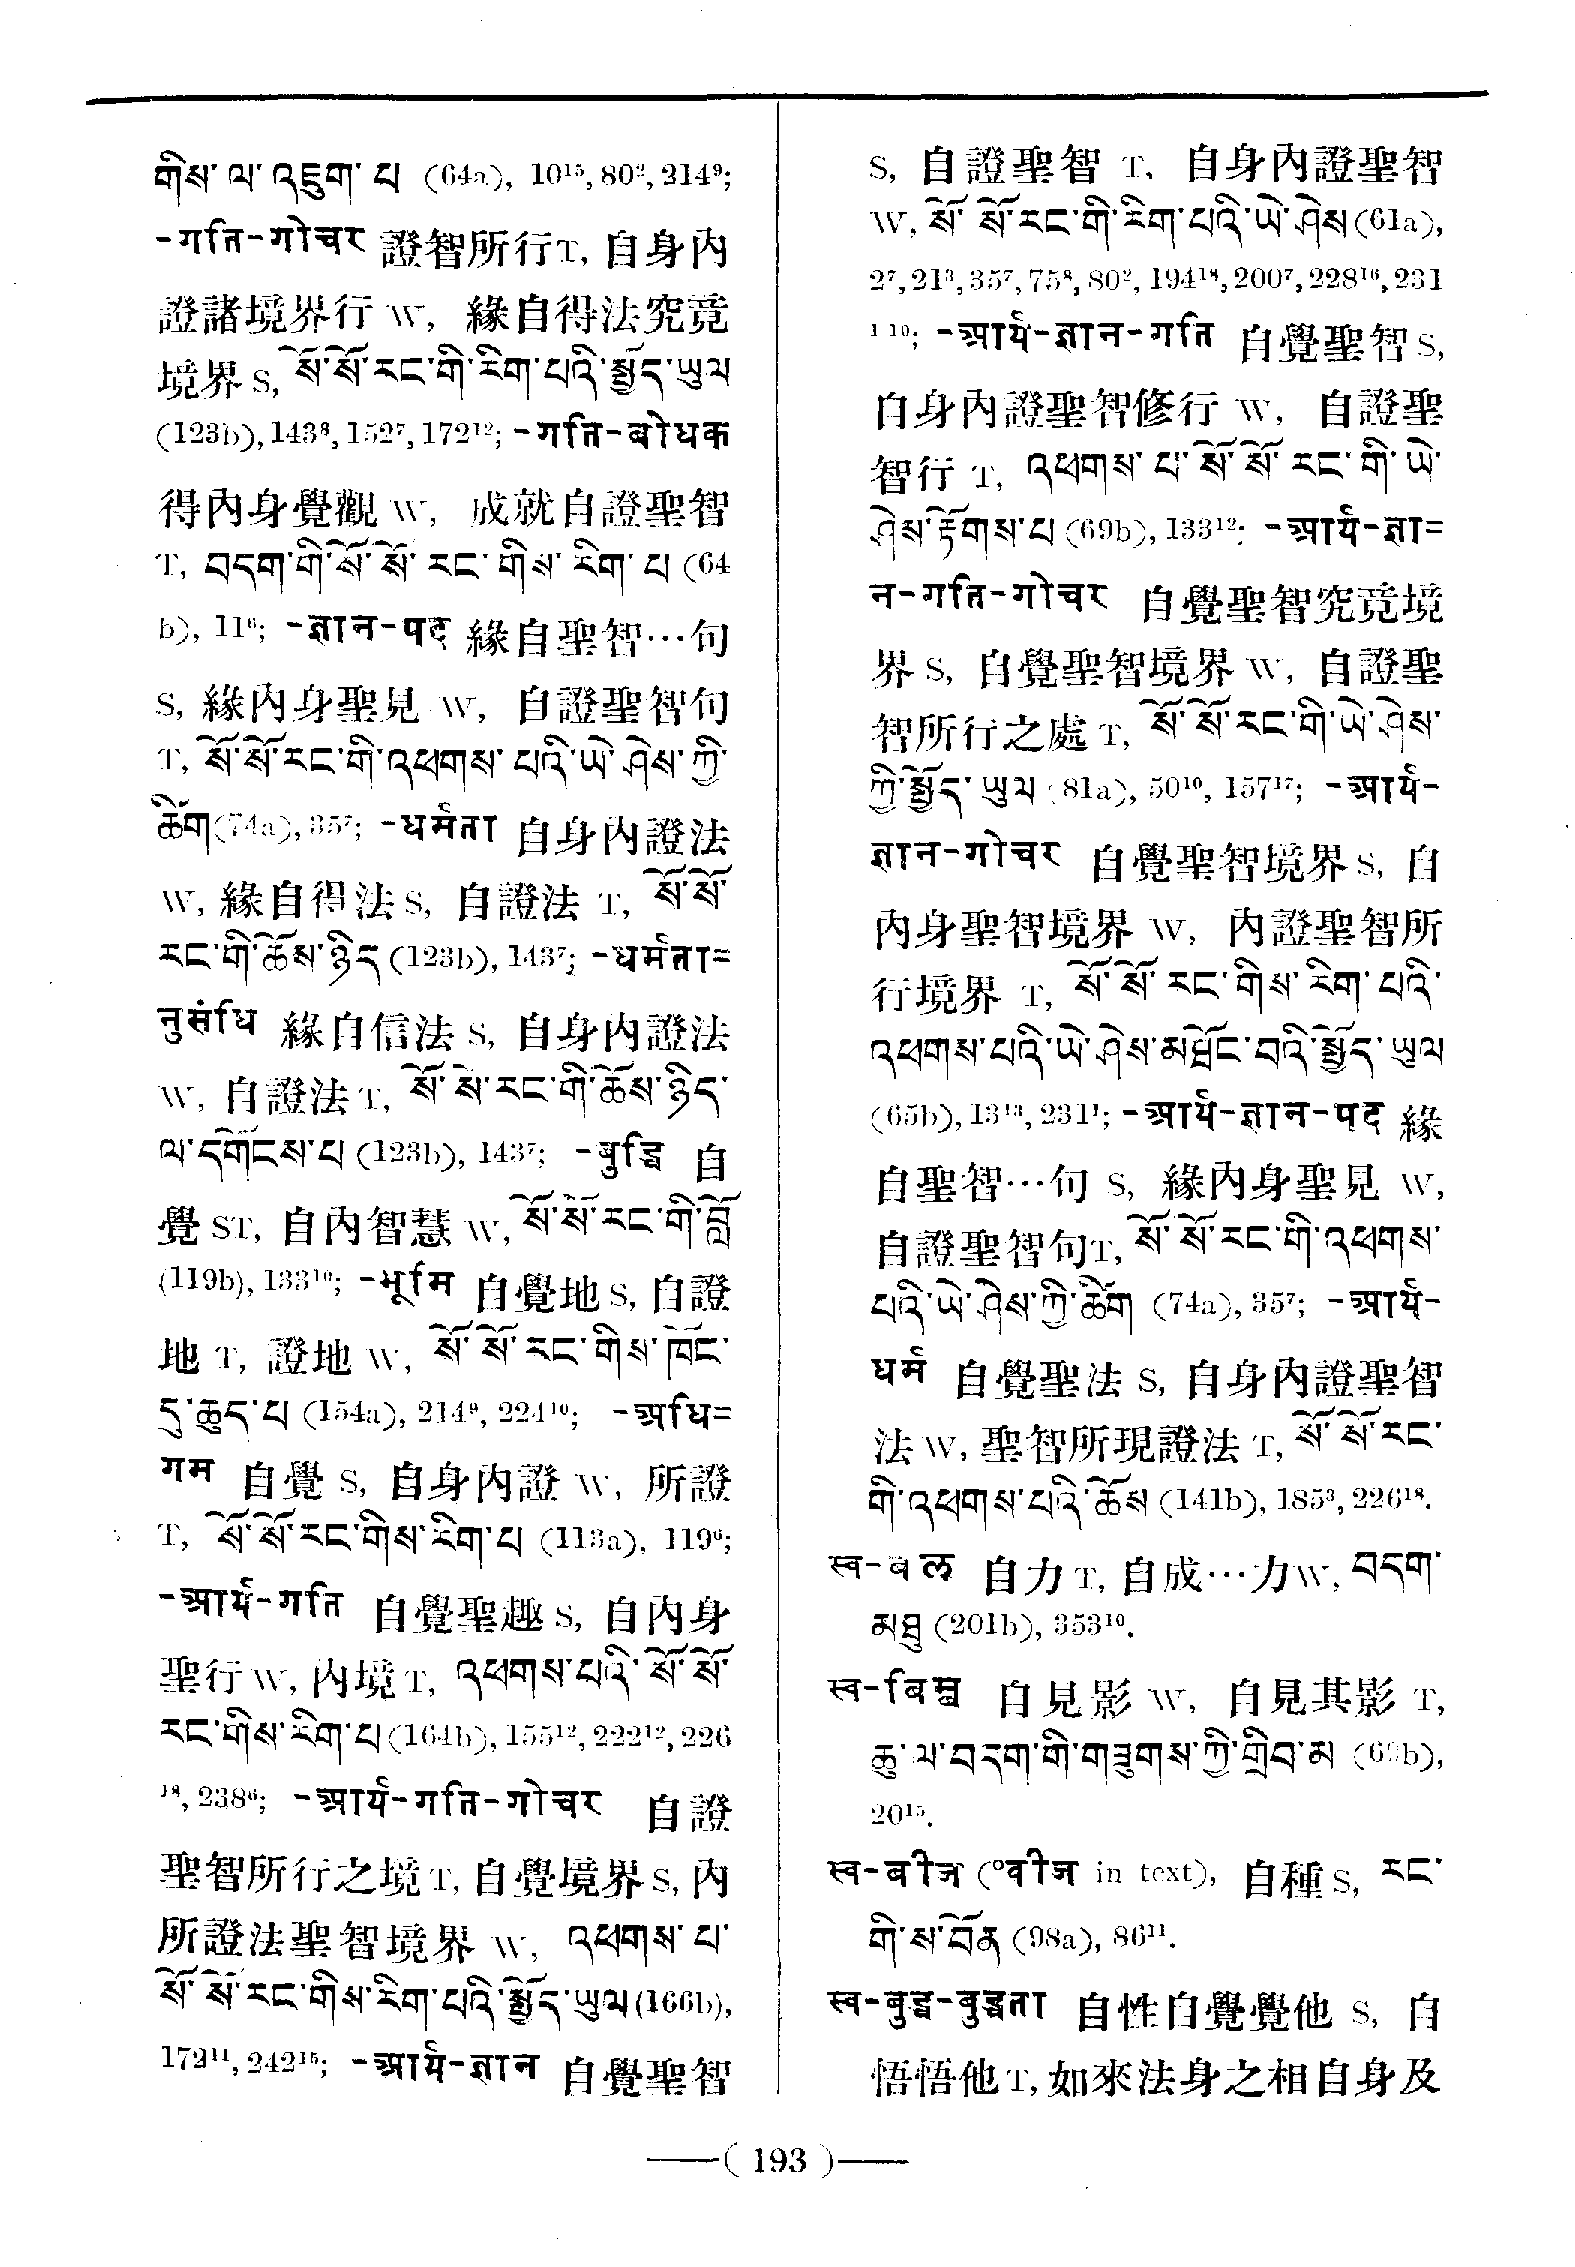 གིས་ ལ་ འཇུག་ པ (64a), 10¹⁵, 80², 214⁹;
-गति-गोचर 證智所行T, 自身內
證諸境界行 W, 緣自得法究竟
境界 S, སོ་སོ་རང་གི་རིག་པའི་སྤྱོད་ཡུལ
(123b), 143⁸, 152⁷, 172¹²; -गति-बोधक
得內身覺觀 W, 成就自證聖智
T, བདག་གི་སོ་སོ་ རང་ གིས་ རིག་ པ (64
b), 11⁶; -ज्ञान-पद 緣自聖智…句
S, 緣內身聖見 W, 自證聖智句
T, སོ་སོ་རང་གི་འཕགས་ པའི་ཡེ་ཤེས་ཀྱི་
ཚིག (74a), 35⁷; -धर्मता 自身內證法
W, 緣自得法 S, 自證法 T, སོ་སོ་
རང་གི་ཆོས་ཉིད (123b), 143⁷; -धर्मता=
नुसंधि 緣自信法 S, 自身內證法
W, 自證法 T, སོ་ སེ་རང་གི་ཆོས་ཉིད་
ལ་དགོངས་པ (123b), 143⁷; -बुद्धि 自
覺 ST, 自內智慧 W, སོ་སོ་རང་གི་བློ
(119b), 133¹⁰; -भूमि 自覺地 S, 自證
地 T, 證地 W, སོ་ སོ་ རང་ གིས་ ཁོང་
དུ་ཆུད་པ (154a), 214⁹, 224¹⁰; -अधि=
गम 自覺 S, 自身內證 W, 所證
T, སོ་སོ་རང་གིས་རིག་པ (113a), 119⁶;
-आर्य-गति 自覺聖趣 S, 自內身
聖行 W, 內境 T, འཕགས་པའི་ སོ་སོ་
རང་གིས་རིག་པ (164b), 155¹², 222¹², 226
¹⁸, 238⁶; -आर्य-गति-गोचर 自證
聖智所行之境 T, 自覺境界 S, 內
所證法聖智境界 W, འཕགས་ པ་
སོ་ སོ་ རང་གིས་རིག་པའི་སྤྱོད་ཡུལ (166b),
172¹¹, 242¹⁵; -आर्य-ज्ञान 自覺聖智
S, 自證聖智 T, 自身內證聖智
W, སོ་ སོ་རང་གི་རིག་པའི་ཡེ་ཤེས (61a),
2⁷, 21³, 35⁷, 75⁸, 80², 194¹⁸, 200⁷, 228¹⁶, 231
¹ ¹⁰; -आर्य-ज्ञान-गति 自覺聖智 S,
自身內證聖智修行 W, 自證聖
智行 T, འཕགས་ པ་ སོ་ སོ་ རང་ གི་ ཡེ་
ཤེས་རྟོགས་པ (69b), 133¹²; -आर्य-ज्ञा=
न-गति-गोचर 自覺聖智究竟境
界 S, 自覺聖智境界 W, 自證聖
智所行之處 T, སོ་ སོ་ རང་གི་ཡེ་ཤེས་
ཀྱི་སྤྱོད་ ཡུལ (81a), 50¹⁰, 157¹⁷; -आर्य-
ज्ञान-गोचर 自覺聖智境界 S, 自
內身聖智境界 W, 內證聖智所
行境界 T, སོ་ སོ་ རང་གིས་ རིག་ པའི་
འཕགས་པའི་ཡེ་ཤེས་མཐོང་བའི་སྤྱོད་ཡུལ
(65b), 13¹³, 231¹; -आर्य-ज्ञान-पद 緣
自聖智…句 S, 緣內身聖見 W,
自證聖智句T, སོ་ སོ་རང་གི་འཕགས་
པའི་ཡེ་ཤེས་ཀྱི་ཚིག (74a), 35⁷; -आर्य-
धर्म 自覺聖法 S, 自身內證聖智
法 W, 聖智所現證法 T, སོ་ སོ་རང་
གི་འཕགས་པའི་ཆོས (141b), 185³, 226¹⁸.
स्व-बल 自力 T, 自成…力W, བདག་
མཐུ (201b), 353¹⁰.
स्व-बिम्ब 自見影 W, 自見其影 T,
ཆུ་ལ་བདག་གི་གཟུགས་ཀྱི་གྲིབ་མ
20¹⁵.
स्व-बीज (°वीज in text), 自種 S, རང་
གི་ས་བོན (98a), 86¹¹.
स्व-बुद्ध-बुद्धता 自性自覺覺他 S, 自
悟悟他 T, 如來法身之相自身及
( 193 )